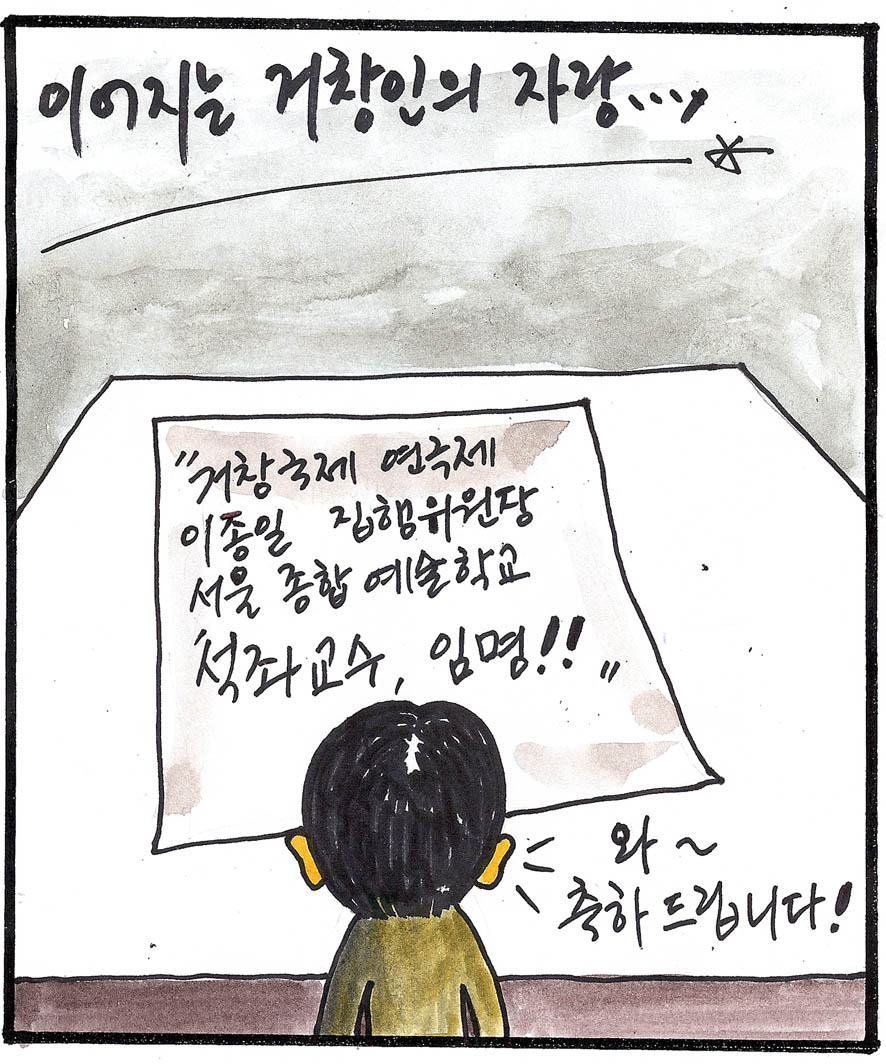 이어지는 거창인의 자랑...,
"거창국제 연극제
이종일 집행위원장
서울 종합예술학교
'석좌교수, 임명!!"
와 ~
축하드립니다!